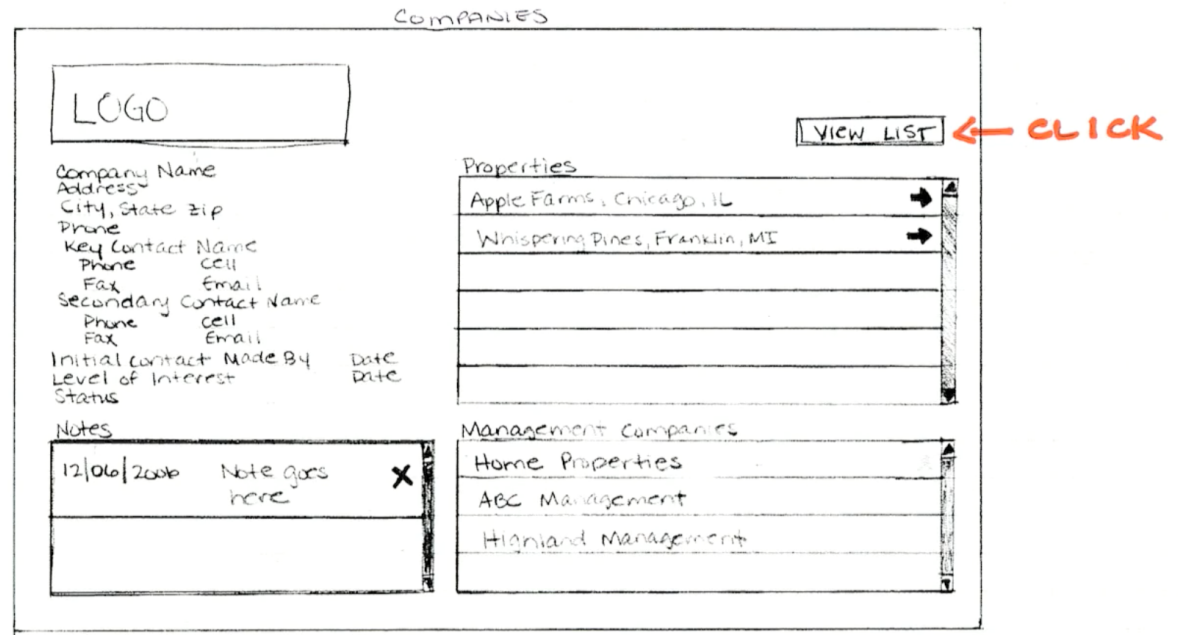 COMPANIES
LOGO
VIEW LIST
CLICK
Company Name
Address
City, State Zip
Phone
Key Contact Name
Phone Cell
Fax Email
Secondary Contact Name
Phone Cell
Fax Email
Initial Contact Made By Date
Level of Interest Date
Status
Properties
Apple Farms, Chicago, IL
Whispering Pines, Franklin, MI
Notes
12/06/2006 Note goes
here
Management Companies
Home Properties
ABC Management
Highland Management